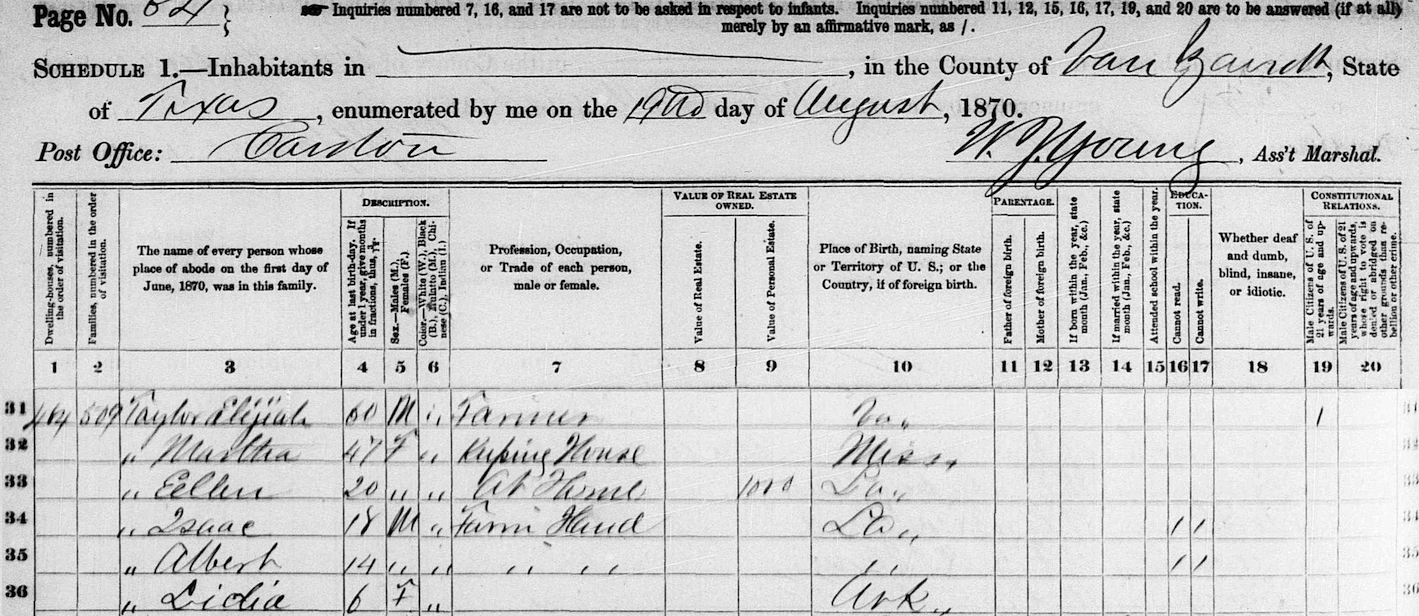 Page No. 64 }
Inquiries numbered 7, 16, and 17 are not to be asked in respect to infants. Inquiries numbered 11, 12, 15, 16, 17, 19, and 20 are to be answered (if at all)
merely by an affirmative mark, as /.
SCHEDULE 1.—Inhabitants in , in the County of Van Zandt, State
of Texas, enumerated by me on the day of August, 1870.
Post Office: Canton W. J. Young, Ass't Marshal.
Dwelling-houses, numbered in the order of visitation.
Families, numbered in the order of visitation.
The name of every person whose place of abode on the first day of June, 1870, was in this family.
DESCRIPTION.
Age at last birth-day. If under 1 year, give months in fractions, thus,
Sex.—Males (M.), Females (F.)
Color.—White (W.), Black (B.), Mulatto (M.), Chinese (C.), Indian (I.)
Profession, Occupation, or Trade of each person, male or female.
VALUE OF REAL ESTATE OWNED.
Value of Real Estate.
Value of Personal Estate.
Place of Birth, naming State or Territory of U. S.; or the Country, if of foreign birth.
PARENTAGE.
Father of foreign birth.
Mother of foreign birth.
If born within the year, state month (Jan., Feb., &c.)
If married within the year, state month (Jan., Feb., &c.)
Attended school within the year.
EDUCATION.
Cannot read.
Cannot write.
Whether deaf and dumb, blind, insane, or idiotic.
CONSTITUTIONAL RELATIONS.
Male Citizens of U. S. of 21 years of age and upwards.
Male Citizens of U. S. of 21 years of age and upwards, whose right to vote is denied or abridged on other grounds than rebellion or other crime.
1 2 3 4 5 6 7 8 9 10 11 12 13 14 15 16 17 18 19 20
31 509 Taylor Elijiah 60 M " Farmer Va " 1 31
32 " Martha 47 F " Keeping House Miss "
33 " Eellen 20 " " At Home 1000 La " 33
34 " Isaac 18 M " Farm Hand La " / / 34
35 " Albert 14 " " " " " " " / / 35
36 " Lidia 6 F " Ark " 36